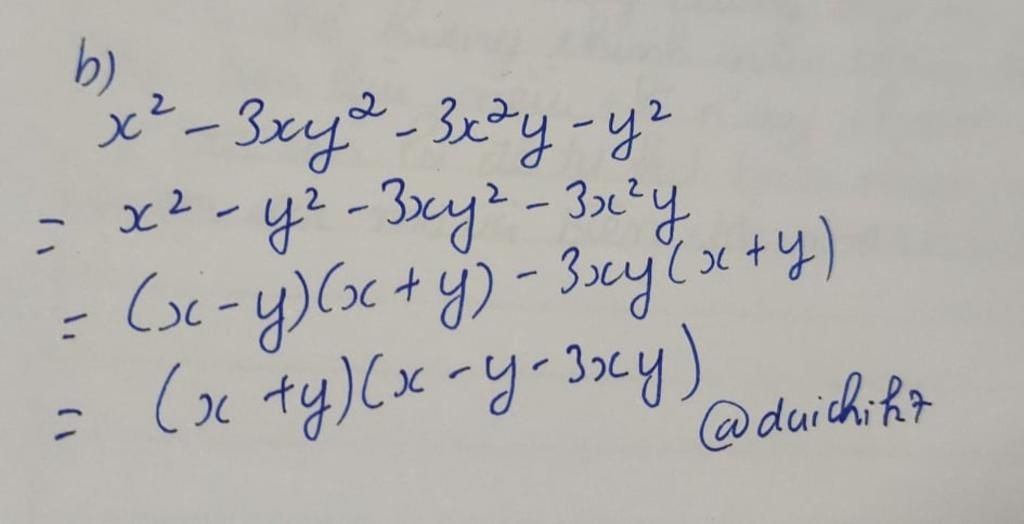 b)
x² - 3xy² - 3x²y - y²
= x² - y² - 3xy² - 3x²y
= (x - y)(x + y) - 3xy(x + y)
= (x + y)(x - y - 3xy)
@duichik7